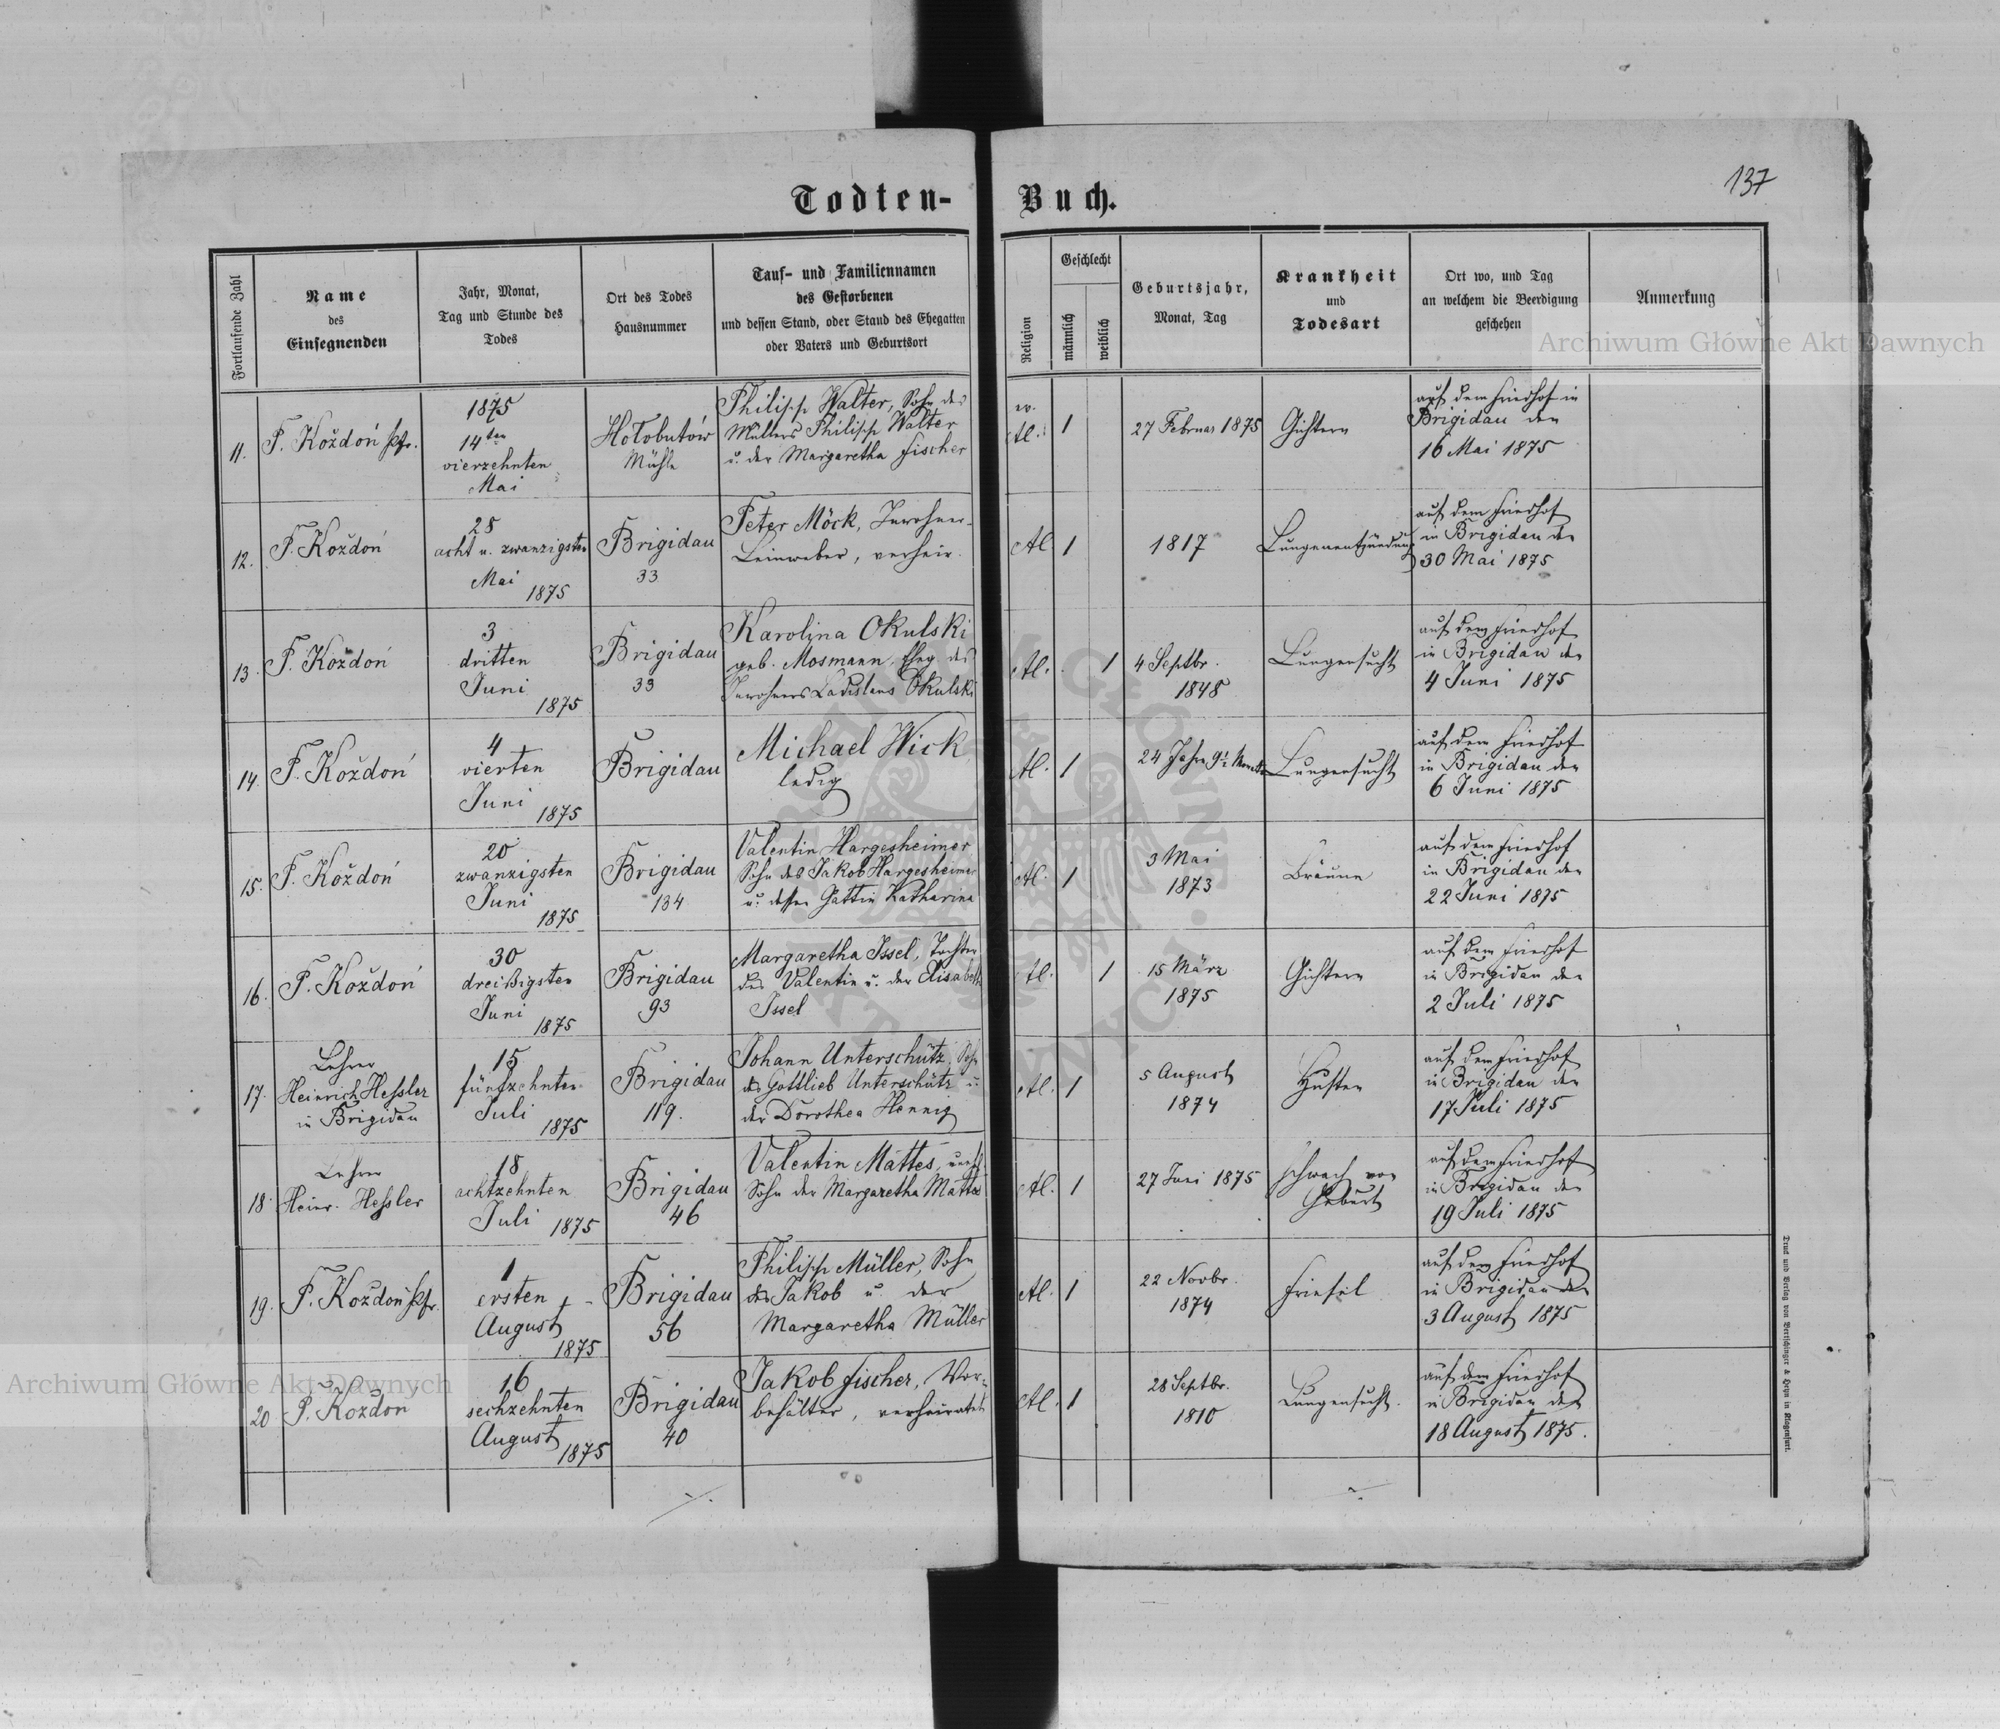 137
Todten-Buch.
Fortlaufende Zahl
Name
des
Einsegnenden
Jahr, Monat,
Tag und Stunde des
Todes
Ort des Todes
Hausnummer
Tauf- und Familiennamen
des Gestorbenen
und dessen Stand, oder Stand des Ehegatten
oder Vaters und Geburtsort
Religion
Geschlecht
männlich
weiblich
Geburtsjahr,
Monat, Tag
Krankheit
und
Todesart
Ort wo, und Tag
an welchem die Beerdigung
geschehen
Anmerkung
11.
F. Koždoń Pfr.
1875
14ten
vierzehnten
Mai
Hołobutów
Mühle
Philipp Walter, Sohn des
Müllers Philipp Walter
u. der Margaretha Fischer
ev.
A.
1
27 Februar 1875
Gichtern
auf dem Friedhof in
Brigidau den
16 Mai 1875
12.
F. Koždoń
28
acht u. zwanzigsten
Mai
1875
Brigidau
33
Peter Möck, Inwohner-
Leinweber, verheir.
A.
1
1817
Lungenentzündung
auf dem Friedhof
in Brigidau den
30 Mai 1875
13.
F. Koždoń
3
dritten
Juni
1875
Brigidau
33
Karolina Okulski
geb. Mosmann, Eheg. des
Inwohners Ladislaus Okulski
A.
1
4 Septbr.
1848
Lungensucht
auf dem Friedhof
in Brigidau den
4 Juni 1875
14
F. Koždoń
4
vierten
Juni
1875
Brigidau
Michael Wick
ledig
A.
1
24 Jahre 9
Lungensucht
auf dem Friedhof
in Brigidau den
6 Juni 1875
15.
F. Koždoń
20
zwanzigsten
Juni
1875
Brigidau
134
Valentin Hargesheimer
Sohn des Jakob Hargesheimer
u. dessen Gattin Katharina
A.
1
3 Mai
1873
Bräune
auf dem Friedhof
in Brigidau den
22 Juni 1875
16.
F. Koždoń
30
dreißigsten
Juni
1875
Brigidau
93
Margaretha Issel, Tochter
des Valentin u. der Elisabeth
Issel
A.
1
15 März
1875
Gichtern
auf dem Friedhof
in Brigidau den
2 Juli 1875
17.
Lehrer
Heinrich Hessler
in Brigidau
15
fünfzehnten
Juli
1875
Brigidau
119.
Johann Unterschütz, Sohn
des Gottlieb Unterschütz u.
der Dorothea Hennig
A.
1
5 August
1874
Husten
auf dem Friedhof
in Brigidau den
17 Juli 1875
18
Lehrer
Heinr. Hessler
18
achtzehnten
Juli 1875
Brigidau
46
Valentin Mattes, unehl.
Sohn der Margaretha Mattes
A.
1
27 Juni 1875
schwach von
Geburt
auf dem Friedhof
in Brigidau den
19 Juli 1875
19.
F. Koždoń Pfr.
1
ersten
August
1875
Brigidau
56
Philipp Müller, Sohn
des Jakob u. der
Margaretha Müller
A.
1
22 Novbr.
1874
Friesel
auf dem Friedhof
in Brigidau den
3 August 1875
20
F. Koždoń
16
sechzehnten
August
1875
Brigidau
40
Jakob Fischer, Vor-
behälter, verheiratet
A.
1
28 Septbr.
1810
Lungensucht.
auf dem Friedhof
in Brigidau den
18 August 1875.
Druck und Verlag von Bertschinger & Heyn in Klagenfurt.
Archiwum Główne Akt Dawnych
Archiwum Główne Akt Dawnych